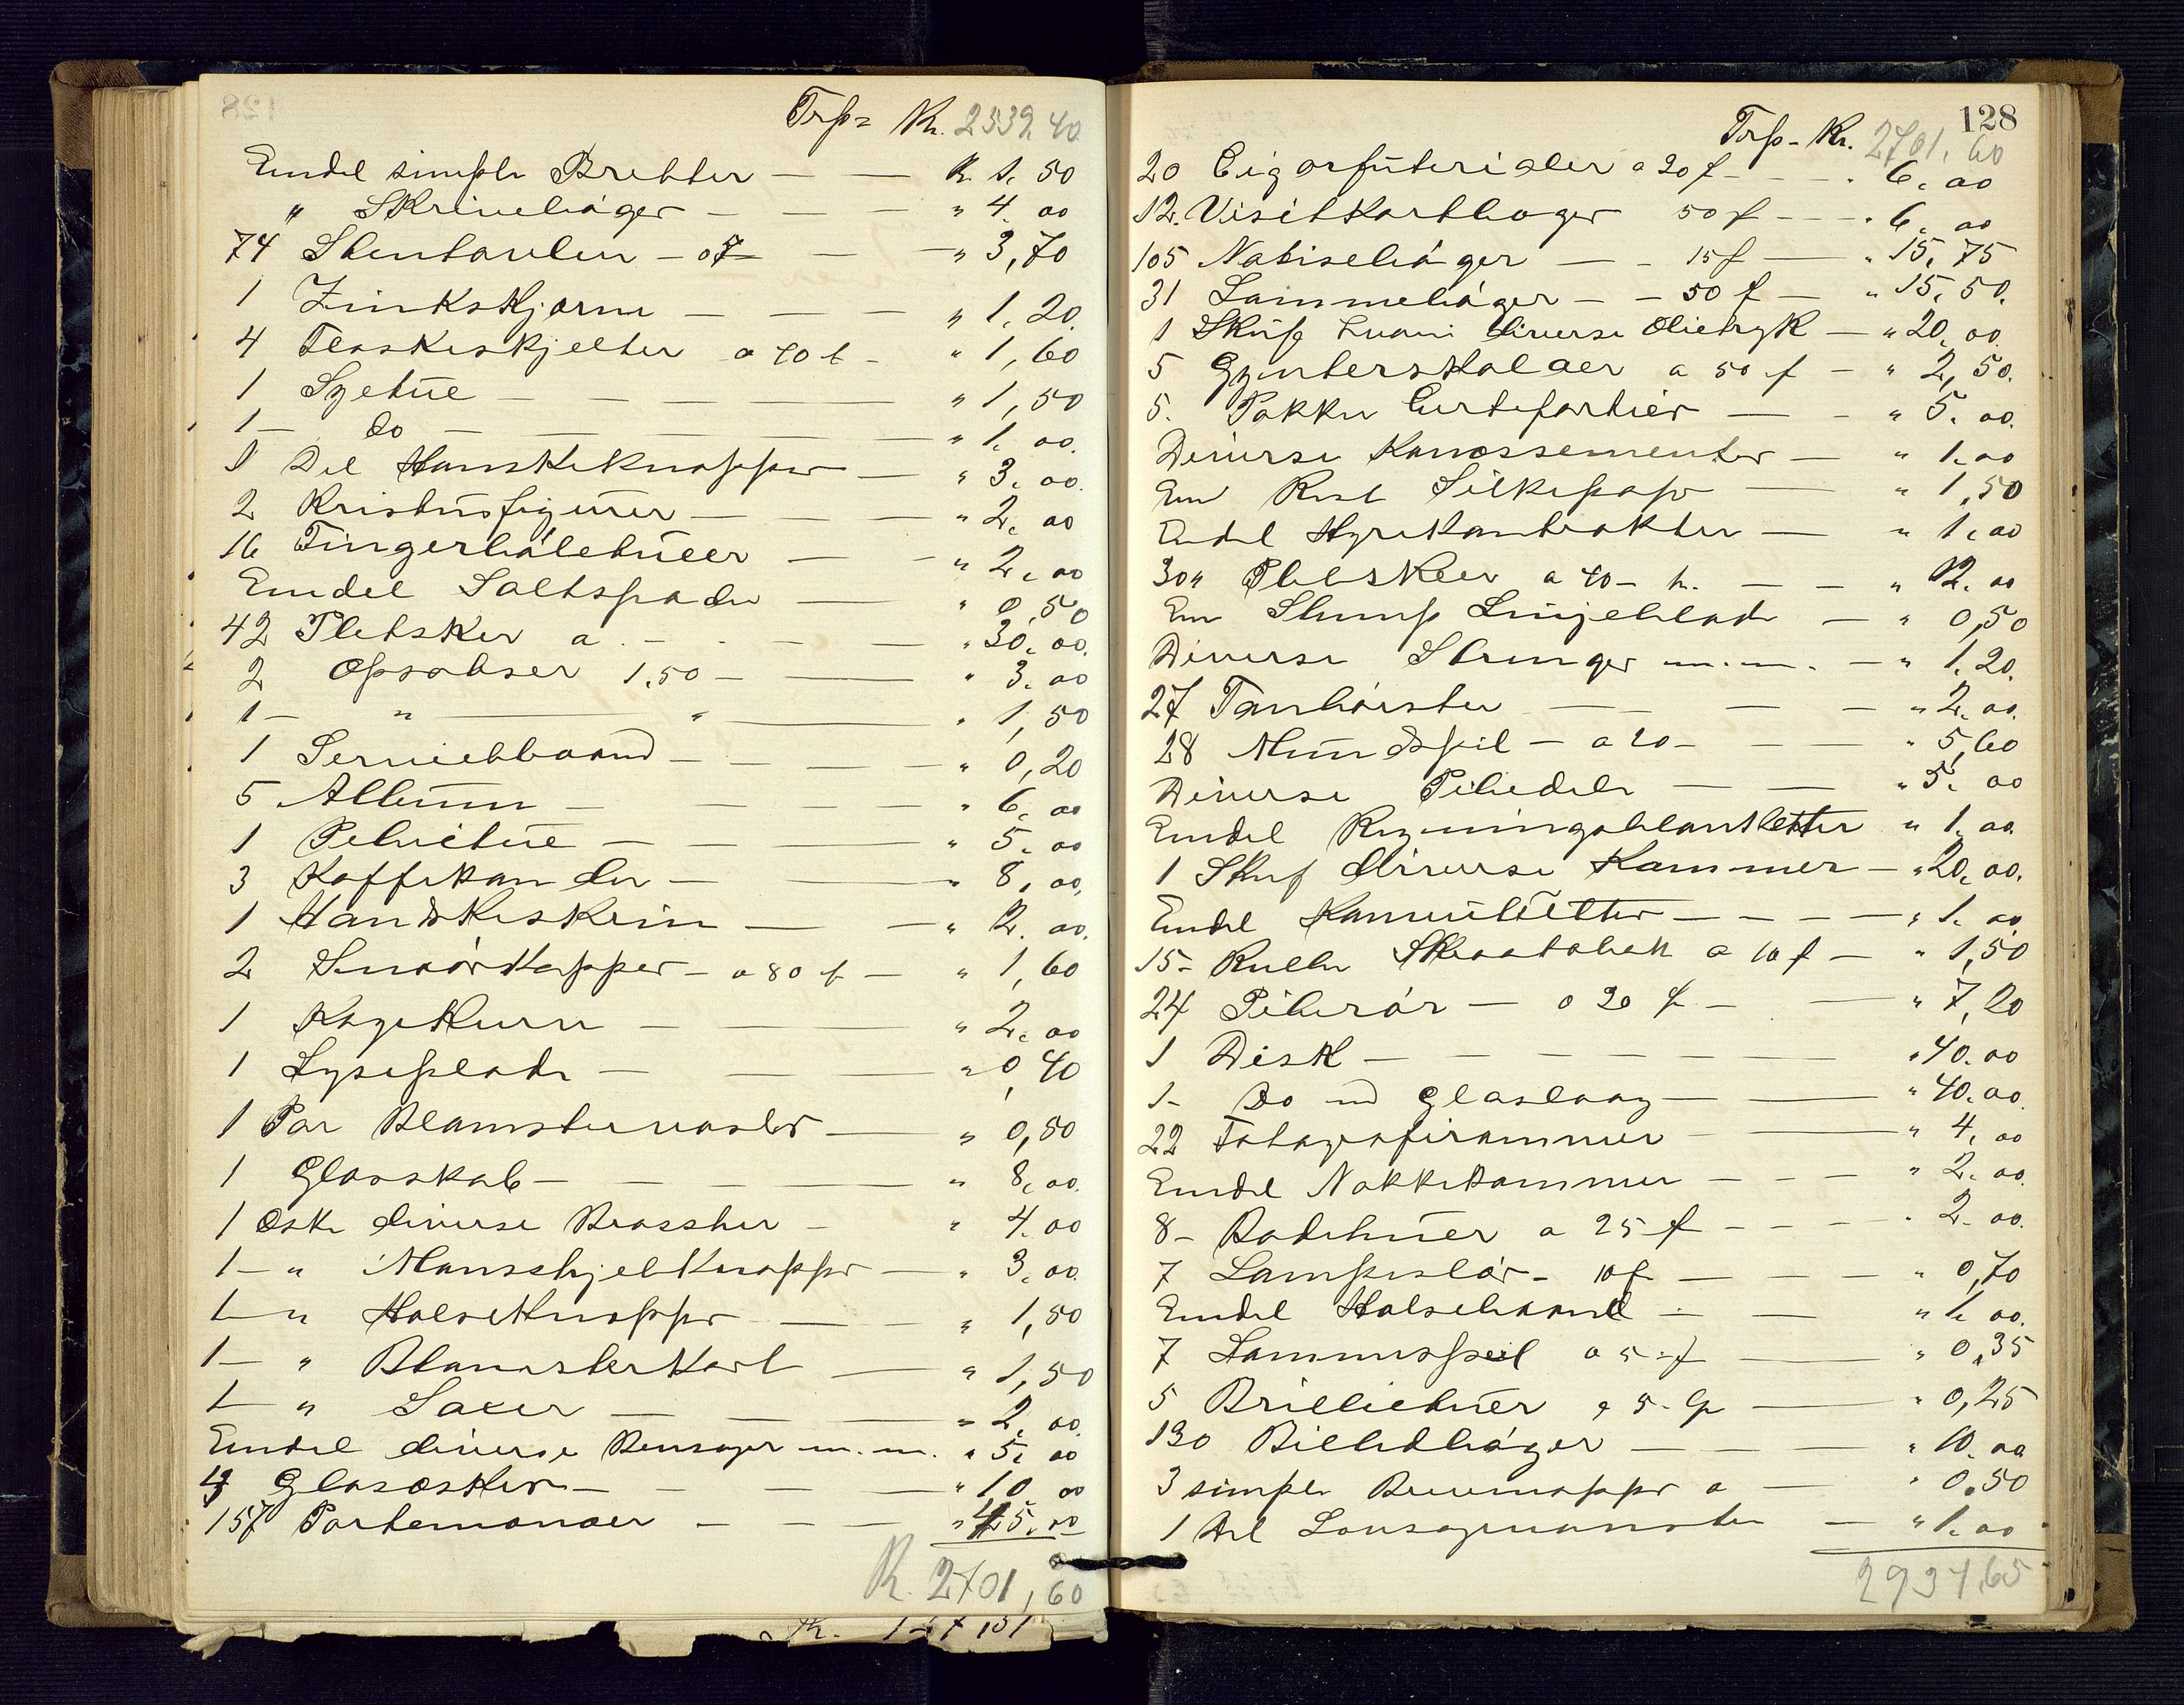 Trsp= Kr. 2532 40
Endel simple Bretter — — Kr. 1. 50
" Skrivebøger — — — " 4. 00
74 Stentavler — — " 3,70
1 Zinkskjørm — — — " 1. 20.
4 Flaskeskjelter a 40 — " 1,60
1 Syetue — — — — " 1,50
1 — do — — — — " 1. 00.
1 Del Hanskeknapper — " 3. 00.
2 Kristusfigurer — — — " 2. 00
16 Fingerbøletueer — — " 2. 00
Endel Saltspader — " 0,50
42 Pletskeer a — — — " 30. 00.
2 Opsatser 1.50 — — " 3. 00
1 — " — " — " 1,50
1 Serviettbaand — — — " 0,20
5 Album — — — — " 6. 00
1 Pelvitue — — — — " 5. 00
3 Kaffekander — — " 8. 00.
1 Handskeskrin — — " 2. 00.
2 Smørkopper — a 80 — " 1,60
1 Kagekurv — — " 2. 00
1 Lyseplade — — — " 0,40
1 Par Blomstervaser — " 0,50
1 Glasskab — — — — " 8. 00.
1 Eske diverse Broscher — " 4. 00
1 — " Manschjetknapper — " 3. 00.
1 — " Halseknapper — — " 1,50
1 — " Blomsterkort — " 1,50
1 — " Saxer — — — " 2. 00.
Endel diverse m.m. " 5. 00
Glasæsker — — — — " 10 00
157 Portemonaer — — — " 45. 00
Kr. 2701,60
Kr.
128
Trsp- Kr. 2701. 60
20 Cigarfuterialer a 30 — — " 6. 00
12. Visitkortbøger 50 — — " 6. 00
105 Notisebøger — — 15 — " 15. 75
31 Lommebøger — — 50 — " 15. 50.
1 Skuf hvori diverse Olietryk — " 20. 00.
5 Gynterskalaer a 50 — " 2,50.
5. Pakker — — " 5. 00.
Diverse Konossementer — " 1. 00
En Rest Silkepapr — " 1,50
Endel Hyrekontrakter — " 1. 00
30 " Pletskeer a 40 — — — " 12. 00
En Slump Linjeblade — " 0,50
Diverse Strenger m.m. — " 1. 20.
27 Tanbørster — — — — " 2. 00.
28 Mundspil — a 20 — — — " 5,60
Diverse Pibedele — — " 5. 00
Endel Regningsblanketter " 1. 00
1 Skuf diverse Kammer — " 20. 00.
Endel — — — — " 1. 00
15 — Ruller Skraatobak a 10 — " 1,50
24 Piberør — a 30 — — " 7,20
1 Disk — — — — — " 40. 00
1 — Do md Glaslaag — — " 40. 00.
22 Fotografirammer — " 4. 00
Endel Nakkekammer — — — " 2. 00.
8 — a 25 — — — " 2. 00.
7 — 10 — — — " 0,70
Endel Halsebaand — — " 1. 00.
7 Lommespeil a 5 — " 0,35
5 Brilletuer a 5 — " 0,25
130 Billedbøger — — " 10. 00
3 simple a — " 0.50
1 Del — " 1. 00
2934,65